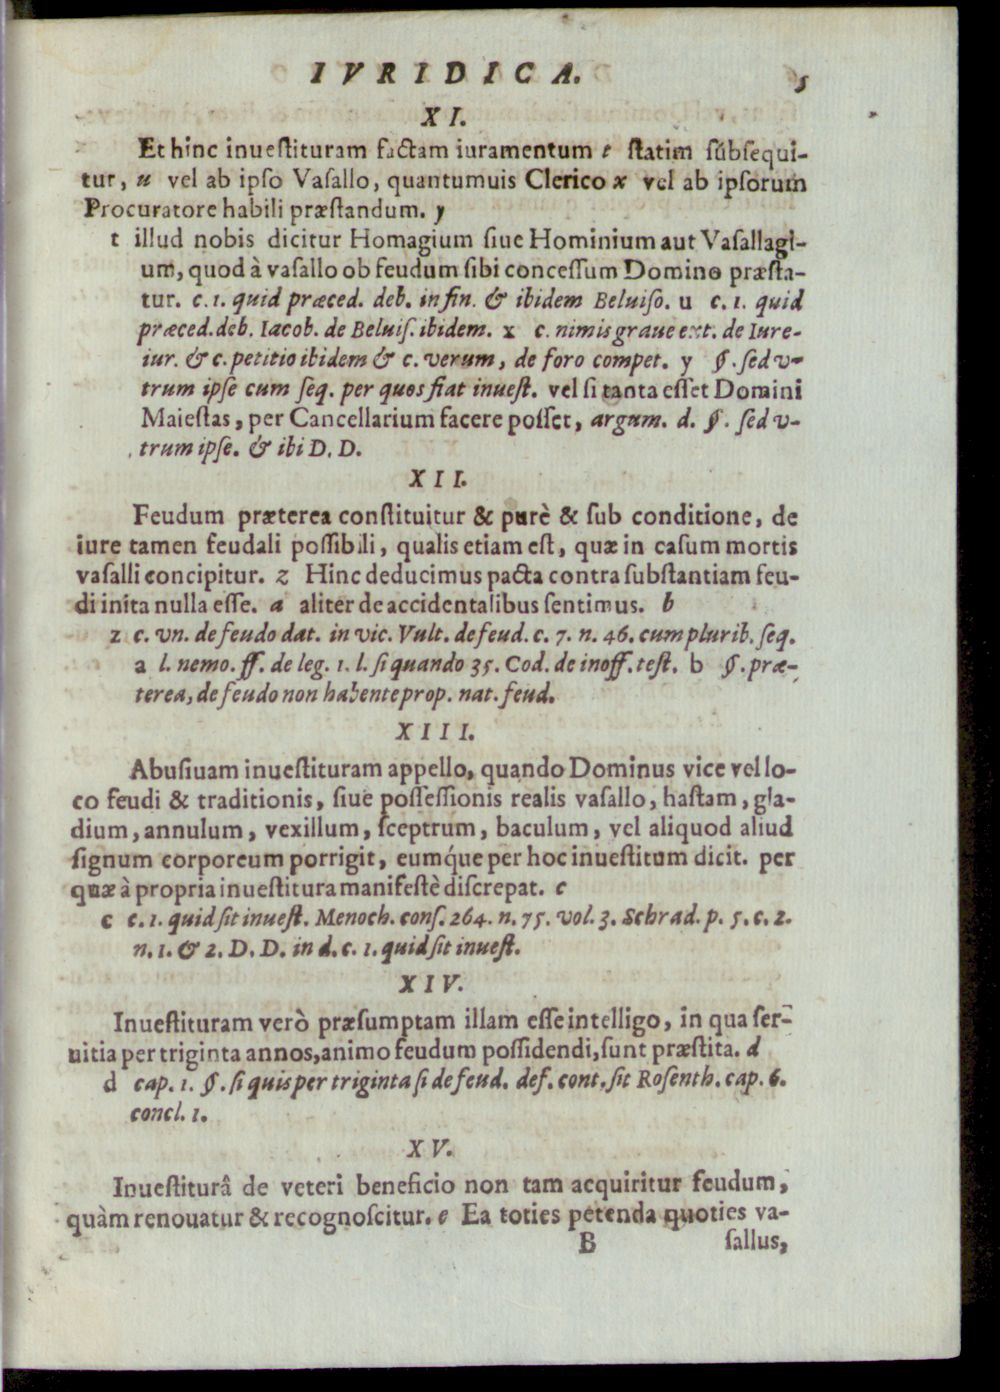 IVRIDICA. 5
XI.
Et hinc inueſtituram factam iuramentum t ſtatim ſubſequi-
tur, u vel ab ipſo Vaſallo, quantumuis Clerico x vel ab ipſorum
Procuratore habili præſtandum. y
t illud nobis dicitur Homagium ſiue Hominium aut Vaſallagi-
um, quod à vaſallo ob feudum ſibi conceſſum Domino præſta-
tur. c. 1. quid præced. deb. in fin. & ibidem Beluiſo. u c. 1. quid
præced. deb. Iacob. de Beluiſ. ibidem. x c. nimis graue ext. de Iure-
iur. & c. petitio ibidem & c. verum, de foro compet. y §. ſed v-
trum ipſe cum ſeq. per quos fiat inueſt. vel ſi tanta eſſet Domini
Maieſtas, per Cancellarium facere poſſet, argum. d. §. ſed v-
trum ipſe. & ibi D. D.
XII.
Feudum præterea conſtituitur & purè & ſub conditione, de
iure tamen feudali poſſibili, qualis etiam eſt, quæ in caſum mortis
vaſalli concipitur. z Hinc deducimus pacta contra ſubſtantiam feu-
di inita nulla eſſe. a aliter de accidentalibus ſentimus. b
z c. vn. de feudo dat. in vic. Vult. de feud. c. 7. n. 46. cum plurib. ſeq.
a l. nemo. ff. de leg. 1. l. ſi quando 35. Cod. de inoff. teſt. b §. præ-
terea, de feudo non habente prop. nat. feud.
XIII.
Abuſiuam inueſtituram appello, quando Dominus vice vel lo-
co feudi & traditionis, ſiue poſſeſſionis realis vaſallo, haſtam, gla-
dium, annulum, vexillum, ſceptrum, baculum, vel aliquod aliud
ſignum corporeum porrigit, eumq́ue per hoc inueſtitum dicit. per
quæ à propria inueſtitura manifeſtè diſcrepat. c
c c. 1. quid ſit inueſt. Menoch. conſ. 264. n. 75. vol. 3. Schrad. p. 5. c. 2.
n. 1. & 2. D. D. in d. c. 1. quid ſit inueſt.
XIV.
Inueſtituram verò præſumptam illam eſſe intelligo, in qua ſer-
uitia per triginta annos, animo feudum poſſidendi, ſunt præſtita. d
d cap. 1. §. ſi quis per triginta ſi de feud. def. cont. ſit Roſenth. cap. 6.
concl. 1.
XV.
Inueſtiturâ de veteri beneficio non tam acquiritur feudum,
quàm renouatur & recognoſcitur. e Ea toties petenda quoties va-
B ſallus,